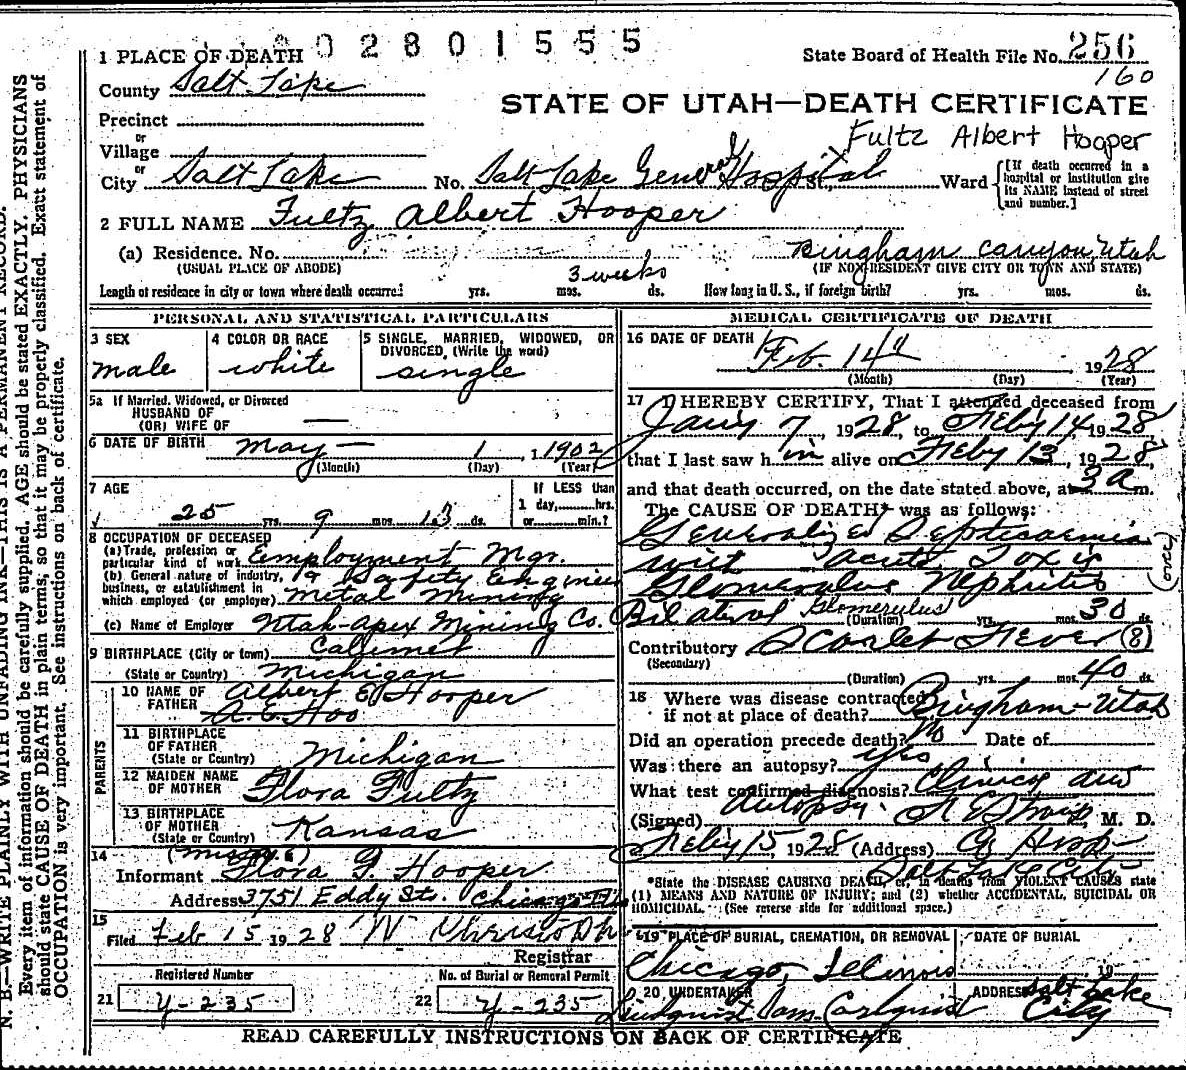 N. B.—WRITE PLAINLY WITH UNFADING INK—THIS IS A PERMANENT RECORD.
Every item of information should be carefully supplied. AGE should be stated EXACTLY. PHYSICIANS
should state CAUSE OF DEATH in plain terms, so that it may be properly classified. Exact statement of
OCCUPATION is very important. See instructions on back of certificate.
02801555
1 PLACE OF DEATH
State Board of Health File No. 256
160
County Salt Lake
STATE OF UTAH—DEATH CERTIFICATE
Precinct
Fultz Albert Hooper
or
Village
or
City Salt Lake No. Salt Lake General Hospital St., Ward
[If death occurred in a
hospital or institution give
its NAME instead of street
and number.]
2 FULL NAME Fultz Albert Hooper
(a) Residence. No. Bingham Canyon, Utah
(USUAL PLACE OF ABODE) (IF NON-RESIDENT GIVE CITY OR TOWN AND STATE)
3 weeks
Length of residence in city or town where death occurred yrs. mos. ds. How long in U. S., if foreign birth? yrs. mos. ds.
PERSONAL AND STATISTICAL PARTICULARS
3 SEX
male
4 COLOR OR RACE
white
5 SINGLE, MARRIED, WIDOWED, OR
DIVORCED, (Write the word)
single
5a If Married, Widowed, or Divorced
HUSBAND OF
(OR) WIFE OF —
6 DATE OF BIRTH May — 1, 1902
(Month) (Day) (Year)
7 AGE
25 yrs. 9 mos. 13 ds.
If LESS than
1 day, hrs.
or min.?
8 OCCUPATION OF DECEASED
(a) Trade, profession or
particular kind of work Employment Mgr.
(b) General nature of industry, & Safety Engineer
business, or establishment in
which employed (or employer) Metal Mining
(c) Name of Employer Utah-Apex Mining Co.
9 BIRTHPLACE (City or town) Calumet
(State or Country) Michigan
PARENTS
10 NAME OF
FATHER Albert E. Hooper
A. E. Hoo
11 BIRTHPLACE
OF FATHER
(State or Country) Michigan
12 MAIDEN NAME
OF MOTHER Flora Fultz
13 BIRTHPLACE
OF MOTHER
(State or Country) Kansas
14
Informant Flora G. Hooper
Address 3751 Eddy St. Chicago Ill
15
Filed Feb 15 1928
Registrar
Registered Number
No. of Burial or Removal Permit
21 Y-235
22 Y-235
MEDICAL CERTIFICATE OF DEATH
16 DATE OF DEATH Feb. 14th 1928
(Month) (Day) (Year)
17 I HEREBY CERTIFY, That I attended deceased from
Jany 7, 1928, to Feby 14, 1928
that I last saw him alive on Feby 13, 1928,
and that death occurred, on the date stated above, at 3 a m.
The CAUSE OF DEATH* was as follows:
Generalized Septicaemia
with acute Toxic
Glomerulus Nephritis
(over)
Bilateral Glomerulus
(Duration) yrs. mos. 30 ds.
Contributory Scarlet Fever (8)
(Secondary)
(Duration) yrs. mos. 40 ds.
18 Where was disease contracted
if not at place of death? Bingham—Utah
Did an operation precede death? No Date of
Was there an autopsy? yes
What test confirmed diagnosis? Clinical and
Autopsy
(Signed) M. D.
Feby 15, 1928 (Address) Hosp
Salt Lake City
*State the DISEASE CAUSING DEATH, or, in deaths from VIOLENT CAUSES state
(1) MEANS AND NATURE OF INJURY; and (2) whether ACCIDENTAL, SUICIDAL OR
HOMICIDAL. (See reverse side for additional space.)
19 PLACE OF BURIAL, CREMATION, OR REMOVAL
Chicago, Illinois
DATE OF BURIAL
19
20 UNDERTAKER
ADDRESS Salt Lake
City
READ CAREFULLY INSTRUCTIONS ON BACK OF CERTIFICATE